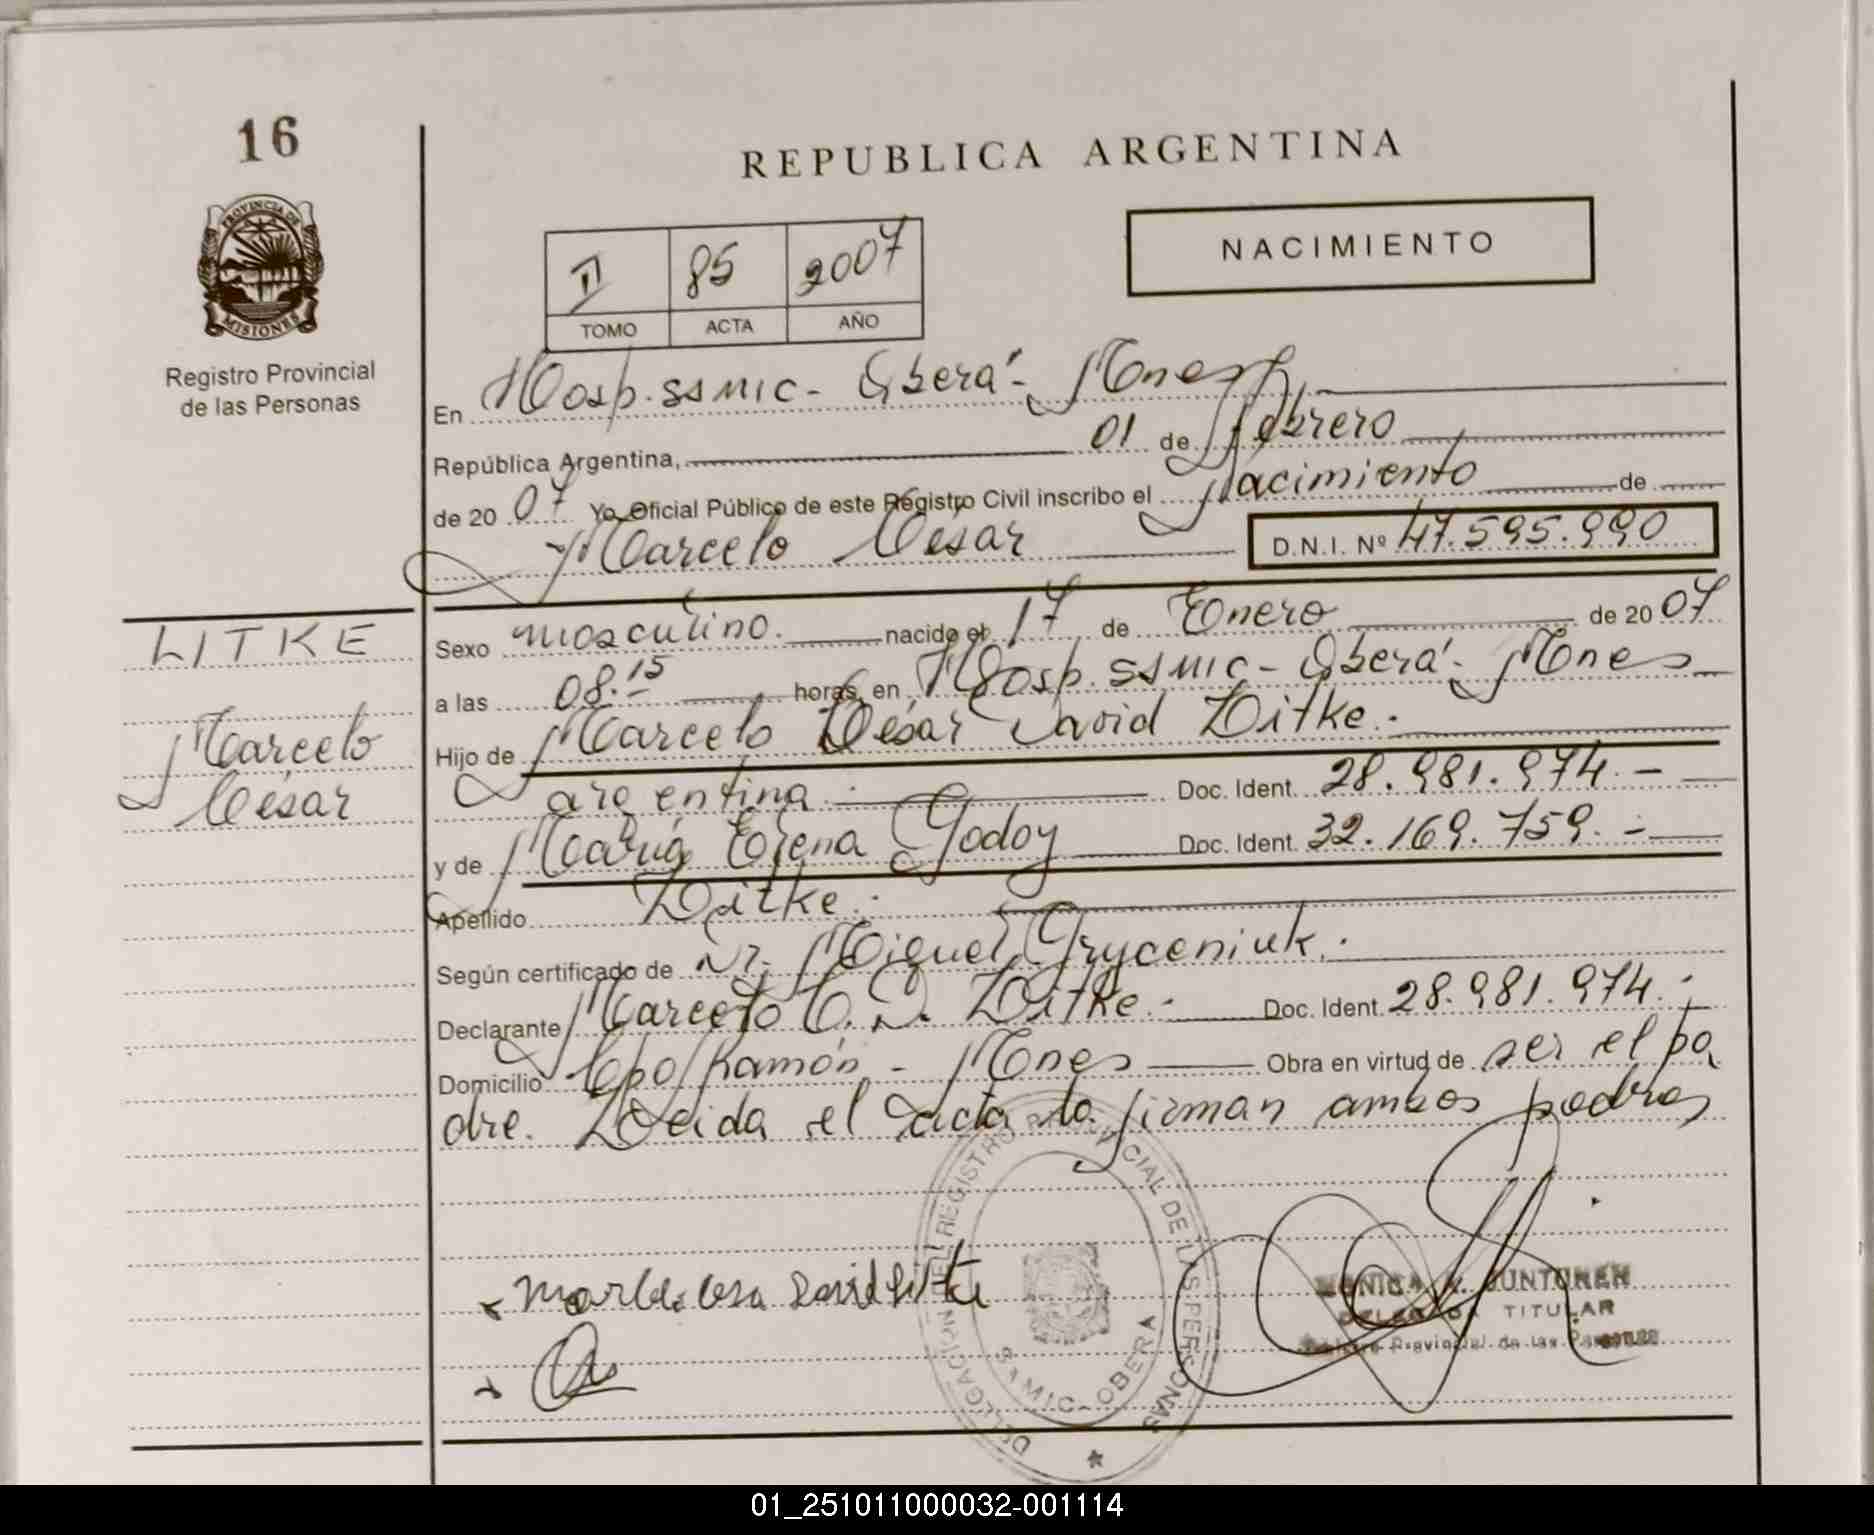 16
REPUBLICA ARGENTINA
PROVINCIA DE
MISIONES
Registro Provincial
de las Personas
II 85 2007
TOMO ACTA AÑO
NACIMIENTO
En Hosp. SSMIC - Oberá - Mnes,
República Argentina, 01 de febrero
de 20 07 Yo Oficial Público de este Registro Civil inscribo el Nacimiento de
Marcelo César D.N.I. Nº 47.595.990
LITKE
Marcelo
César
Sexo masculino. nacido el 17 de Enero de 20 07
a las 08.15 horas, en Hosp. SSMIC - Oberá - Mnes
Hijo de Marcelo César David Litke.-
argentina.- Doc. Ident. 28.981.974.-
y de María Elena Godoy Doc. Ident. 32.169.759.-
Apellido Litke.-
Según certificado de Dr. Miguel Gryceniuk.
Declarante Marcelo C. D. Litke.- Doc. Ident. 28.981.974.-
Domicilio Cpo Ramón - Mnes Obra en virtud de ser el pa
dre. Leída el acta la firman ambos padres
DELEGACION DEL REGISTRO PROVINCIAL DE LAS PERSONAS
SAMIC - OBERA
MONICA JUNTUNEN
DELEGADA TITULAR
Registro Provincial de las Personas
01_251011000032-001114